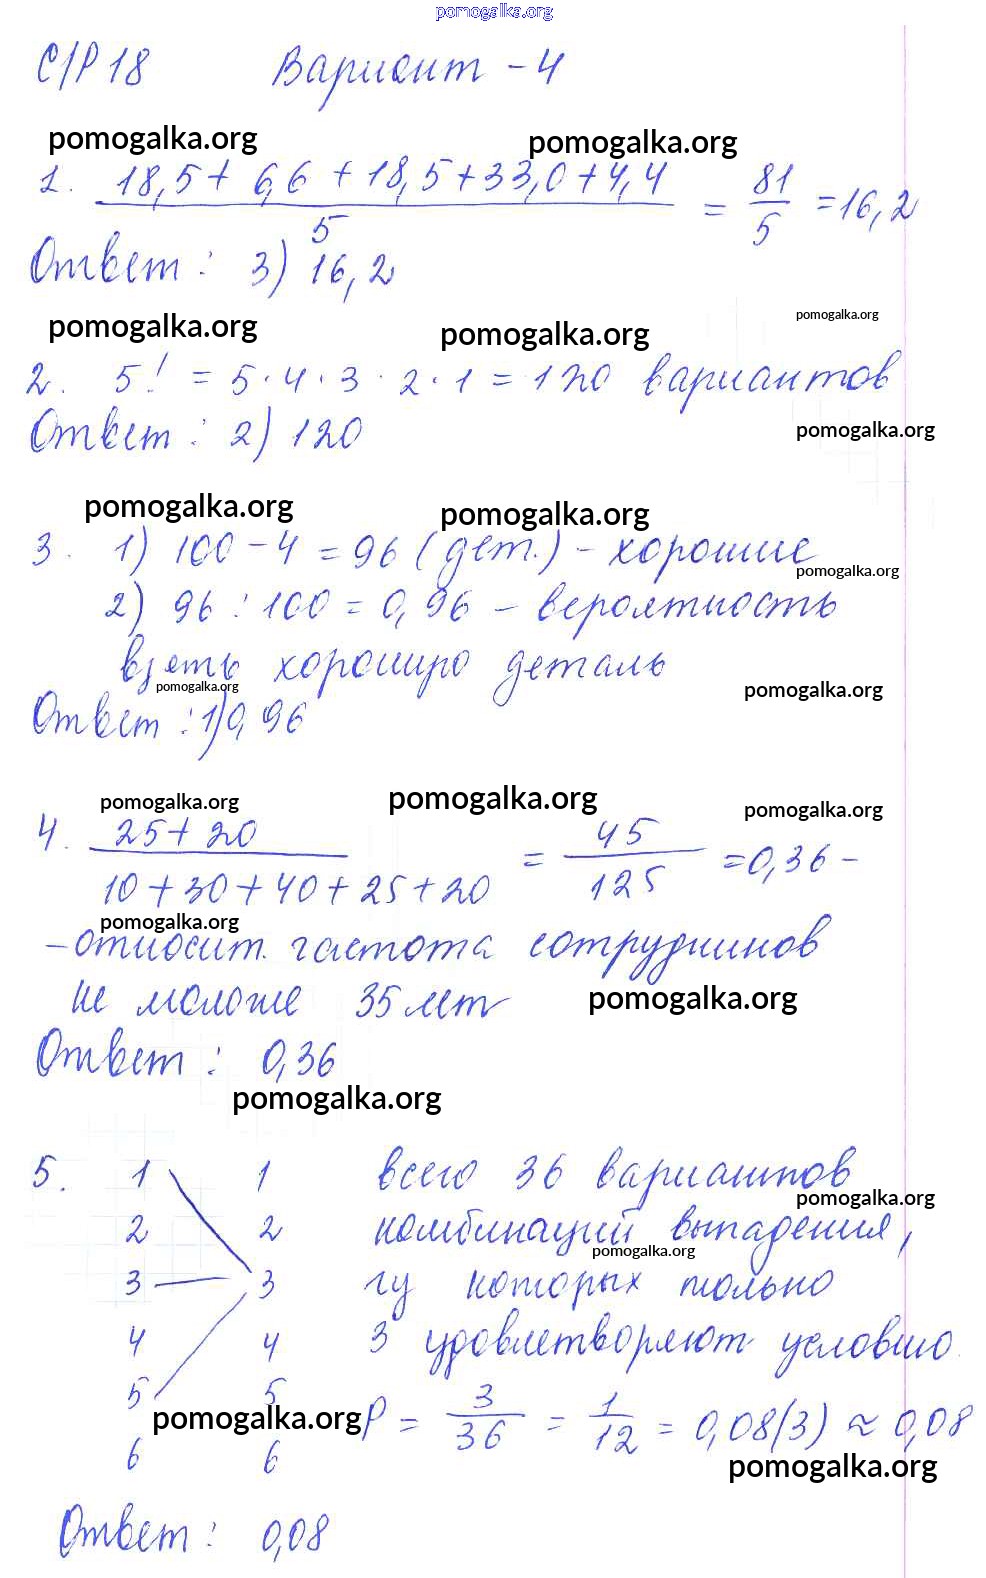 pomogalka.org
С/Р 18 Вариант - 4
pomogalka.org pomogalka.org
1. 18,5 + 6,6 + 18,5 + 33,0 + 4,4 / 5 = 81 / 5 = 16,2
Ответ: 3) 16,2
pomogalka.org pomogalka.org pomogalka.org
2. 5! = 5 · 4 · 3 · 2 · 1 = 120 вариантов
Ответ: 2) 120 pomogalka.org
pomogalka.org pomogalka.org
3. 1) 100 - 4 = 96 (дет.) - хорошие
pomogalka.org
2) 96 : 100 = 0,96 - вероятность
взять хорошую деталь
pomogalka.org pomogalka.org
Ответ: 1) 0,96
pomogalka.org pomogalka.org pomogalka.org
4. 25 + 20 / 10 + 30 + 40 + 25 + 20 = 45 / 125 = 0,36 -
pomogalka.org
- относит. частота сотрудников
не моложе 35 лет pomogalka.org
Ответ: 0,36
pomogalka.org
5. 1 1 всего 36 вариантов
pomogalka.org
2 2 комбинаций выпадения,
pomogalka.org
3 3 из которых только
4 4 3 удовлетворяют условию
5 5 P = 3 / 36 = 1 / 12 = 0,08(3) ≈ 0,08
pomogalka.org
6 6 pomogalka.org
Ответ: 0,08